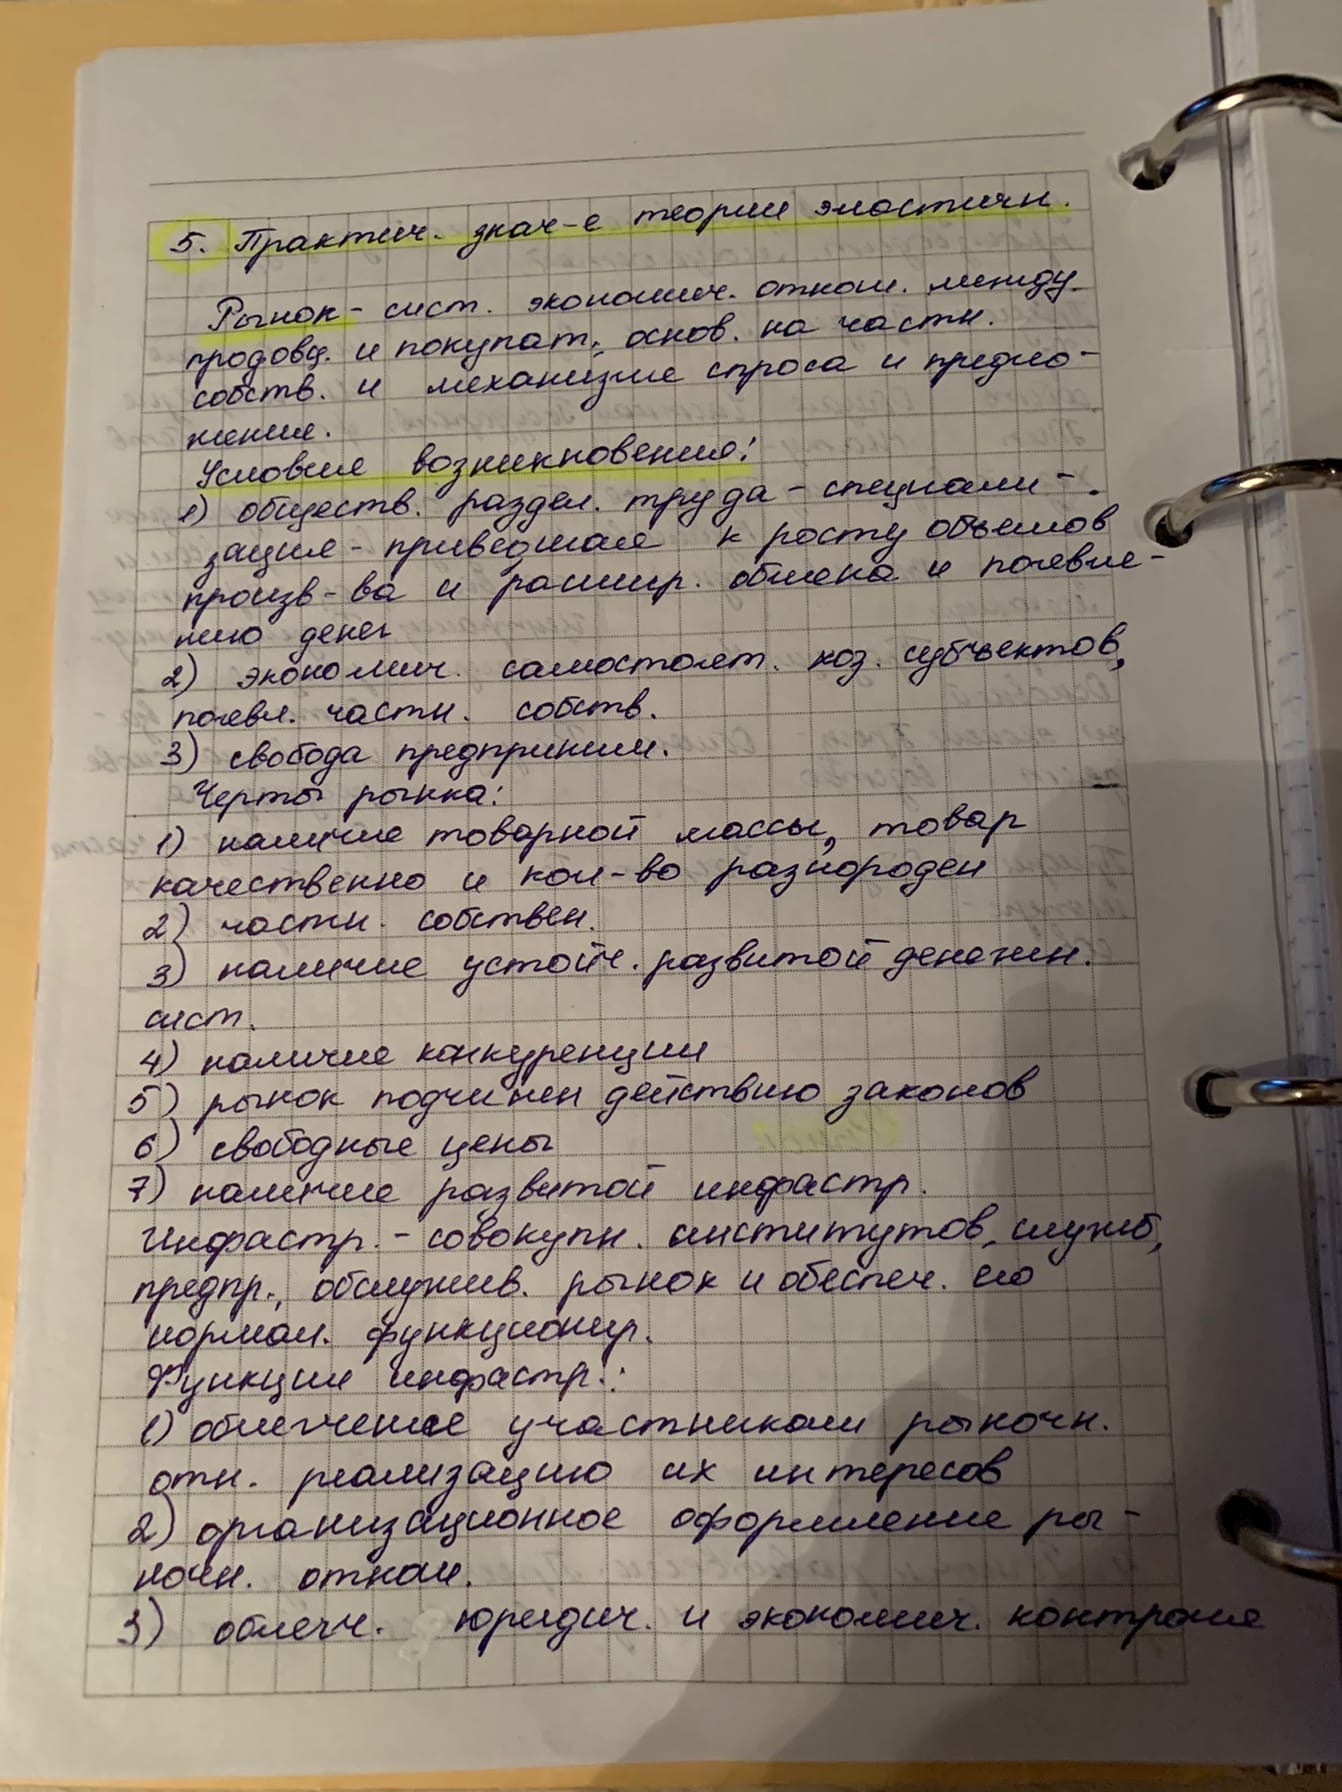 5. Практич. знач-е теории эластичн.
Рынок - сист. экономич. отнош. между
продавц. и покупат., основ. на частн.
собств. и механизме спроса и предло-
жения.
Условия возникновения:
1) обществ. раздел. труда - специали-
зация - приведшая к росту объемов
произв-ва и расшир. обмена и появле-
нию денег
2) экономич. самостоят. хоз. субъектов,
появл. частн. собств.
3) свобода предприним.
Черты рынка:
1) наличие товарной массы, товар
качественно и кол-во разнороден
2) частн. собствен.
3) наличие устойч. развитой денежн.
сист.
4) наличие конкуренции
5) рынок подчинен действию законов
6) свободные цены
7) наличие развитой инфрастр.
Инфрастр. - совокупн. институтов, служб,
предпр., обслужив. рынок и обеспеч. его
нормал. функционир.
Функции инфрастр.:
1) облегчение участникам рыночн.
отн. реализацию их интересов
2) организационное оформление ры-
ночн. отнош.
3) облегч. юридич. и экономич. контроля